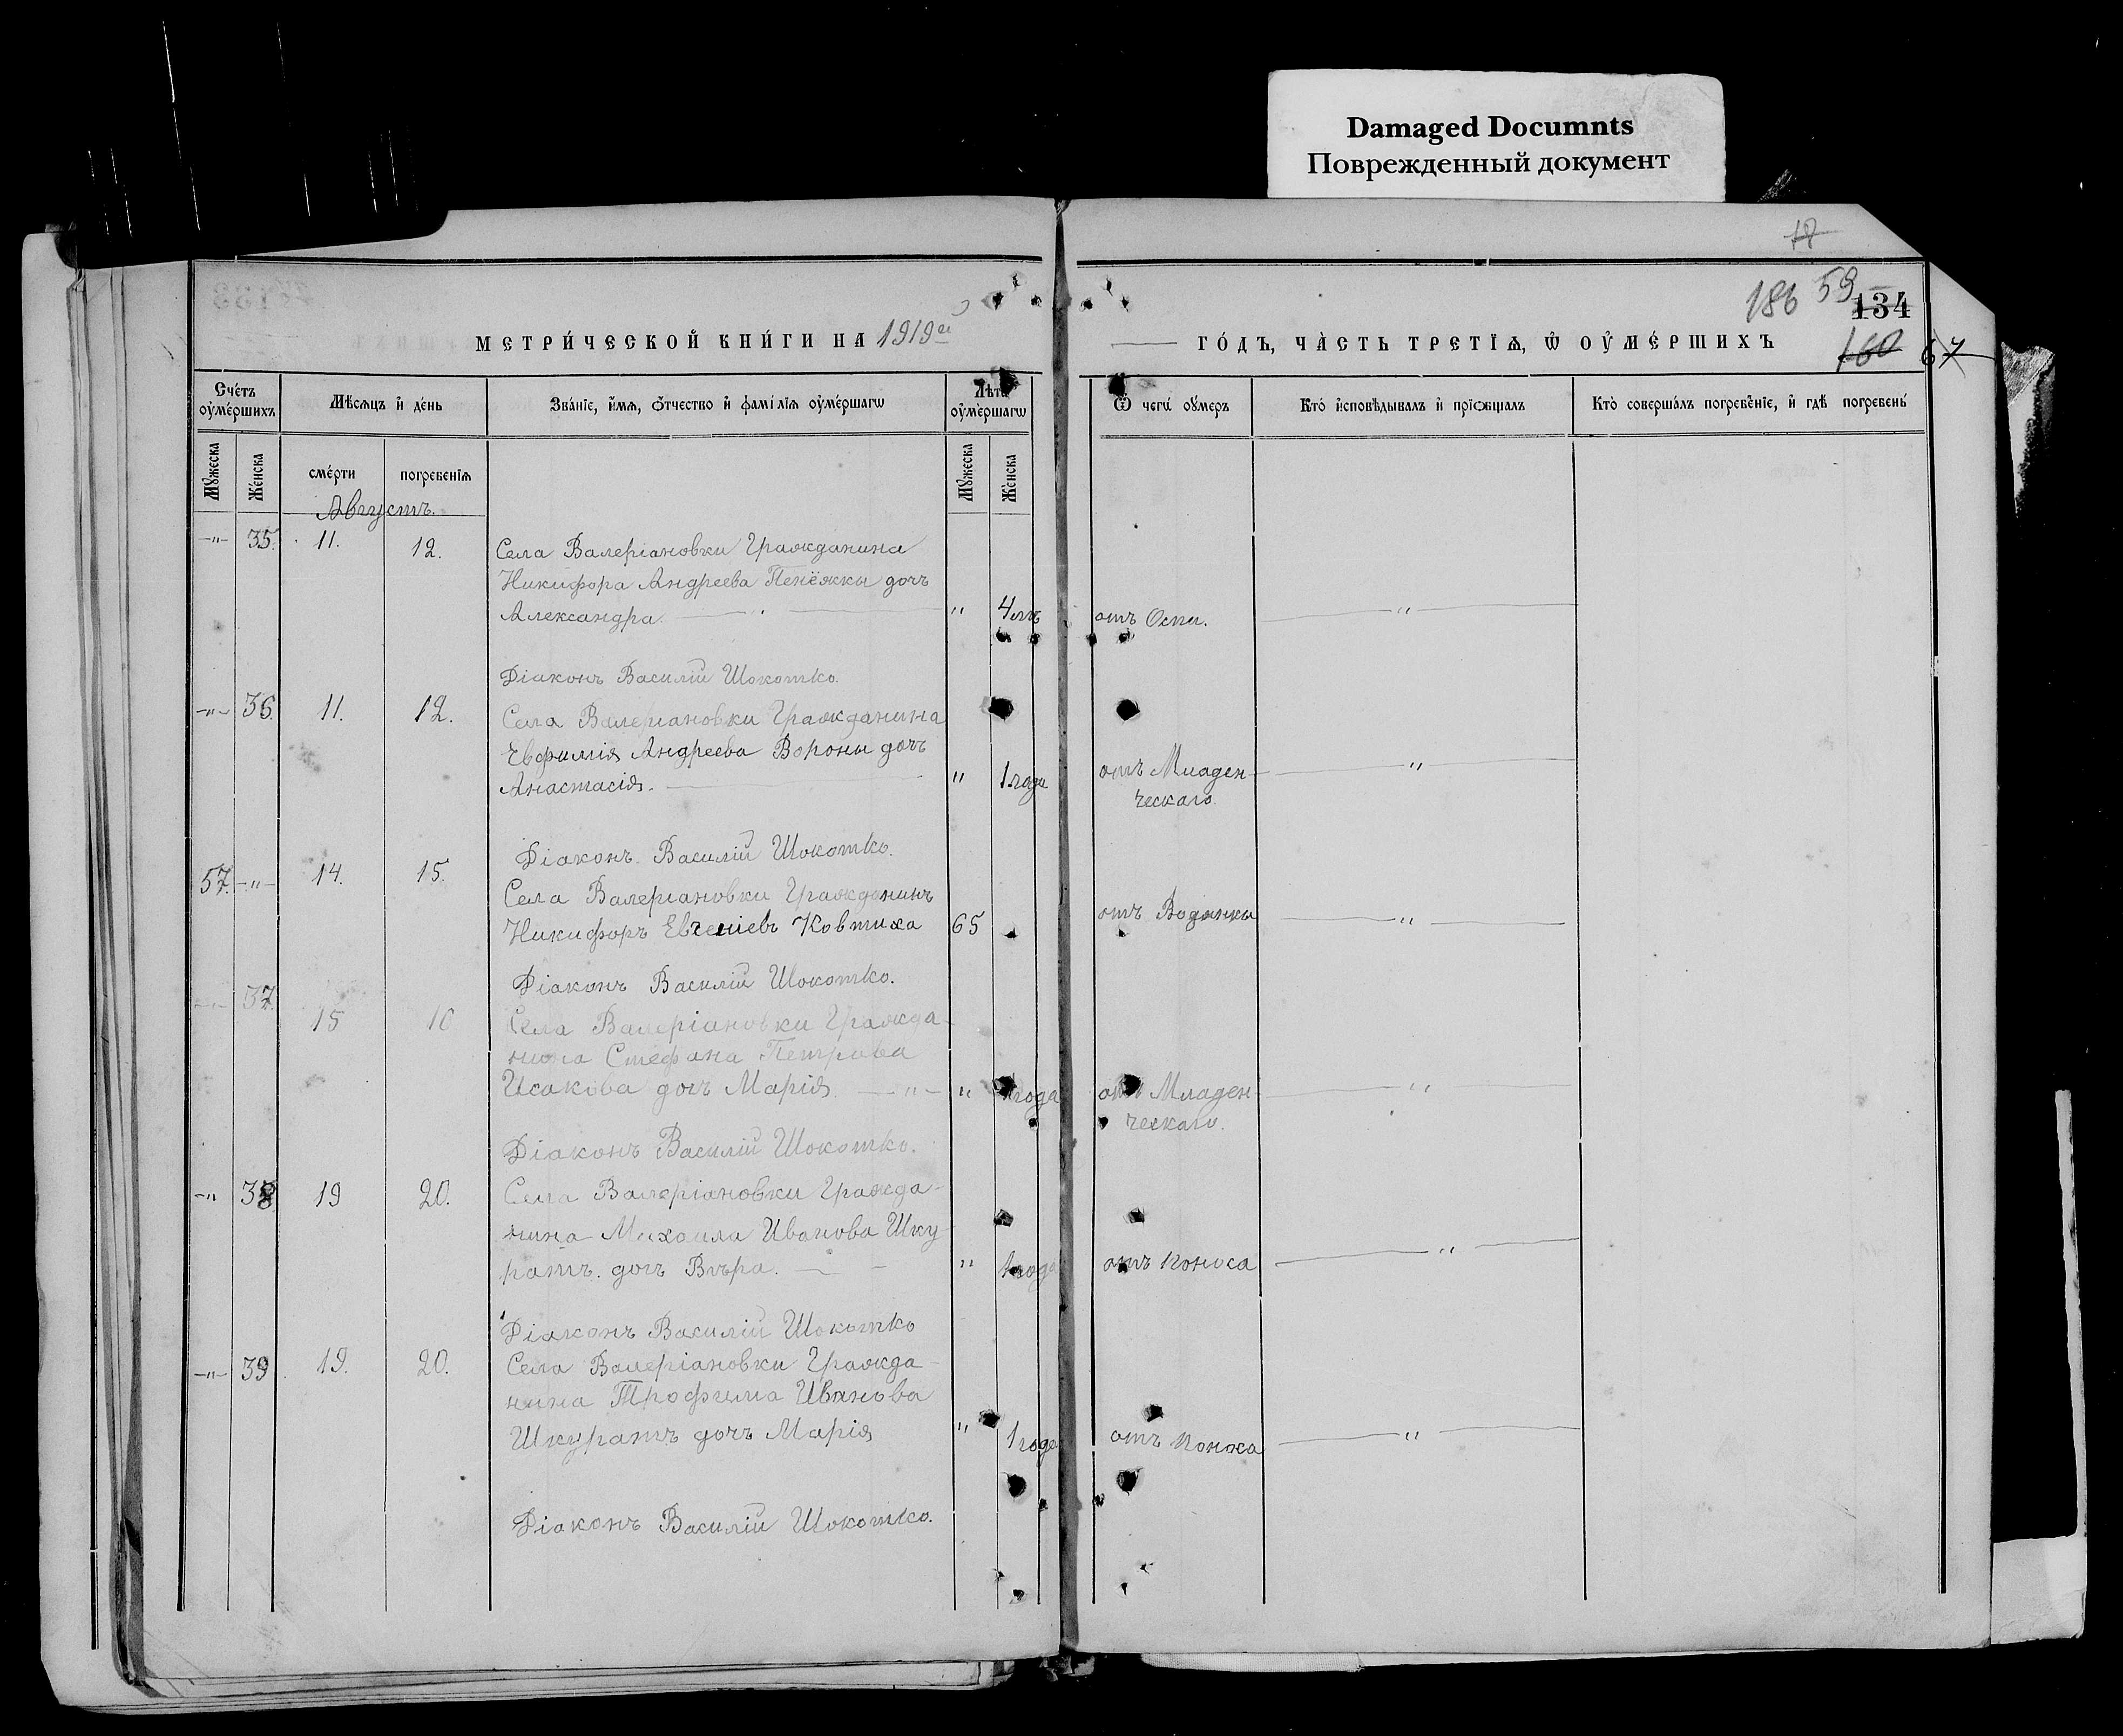 Damaged Documnts
Поврежденный документ
18
186 59 134
МЕТРИ́ЧЕСКОЙ КНИ́ГИ НА 1919 й
ГО́ДЪ, ЧА́СТЬ ТРЕТІ́Ѧ, Ѡ҆ ОУ҆МЕ́РШИХЪ
160 67
Сче́тъ оу҆ме́ршихъ
Мѣ́сѧцъ и҆ де́нь
Зва́нїе, и҆́мѧ, ѻ҆́тчество и҆ фамі́лїѧ оу҆ме́ршагѡ
Лѣта оу҆ме́ршагѡ
Ѿ чегѡ̀ оу҆́меръ
Кто̀ и҆сповѣ́дывалъ и҆ прїѡбща́лъ
Кто̀ соверша́лъ погребе́нїе, и҆ гдѣ̀ погребены̀
Мꙋ́жеска
Же́нска
сме́рти
погребе́нїѧ
Мꙋ́жеска
Же́нска
Августъ.
-"- 35. 11. 12. Села Валеріановки Гражданина
Никифора Андреева Пенёжкы дочъ
Александра. " 4 лѣтъ отъ Оспы. "
Діаконъ Василій Шокотко.
-"- 36. 11. 12. Села Валеріановки Гражданина
Евфимія Андреева Вороны дочъ
Анастасія. " 1 года отъ Младен- "
ческаго.
Діаконъ Василій Шокотко.
57. -"- 14. 15. Села Валеріановки Гражданинъ
Никифоръ Евгеніевъ Ковтиха 65 отъ Водянки "
Діаконъ Василій Шокотко.
-"- 37. 15 16 Села Валеріановки Гражда-
нина Стефана Петрова
Исакова дочъ Марія. -"- " 1 года отъ Младен- "
ческаго.
Діаконъ Василій Шокотко.
-" 38 19 20. Села Валеріановки Гражда-
нина Михаила Иванова Шку
ратъ. дочъ Вѣра. " 1 года отъ поноса "
Діаконъ Василій Шокотко
-"- 39 19. 20. Села Валеріановки Гражда-
нина Трофима Иванова
Шкуратъ дочъ Марія " 1 года отъ поноса "
Діаконъ Василій Шокотко.